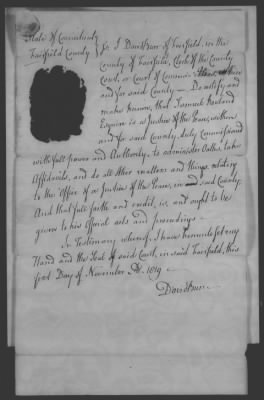 State of Connecticut
Fairfield County } Ss. I David Burr of Fairfield, in the
County of Fairfield, Clerk of the County
Court, or Court of Common Pleas, there
and for said County — Do certify and
make known, that Samuel Rowland
Esquire is a Justice of the Peace, within
and for said County, duly commissioned
with full powers and Authority, to administer Oaths, take
Affidavits, and do all other matters and things relating
to the Office of a Justice of the Peace, in said County
And that full faith and credit, is, and ought to be
given to his Official acts and proceedings —
In Testimony whereof, I have hereunto set my
Hand and the Seal of said Court, in said Fairfield, this
first Day of November AD. 1819 —
David Burr